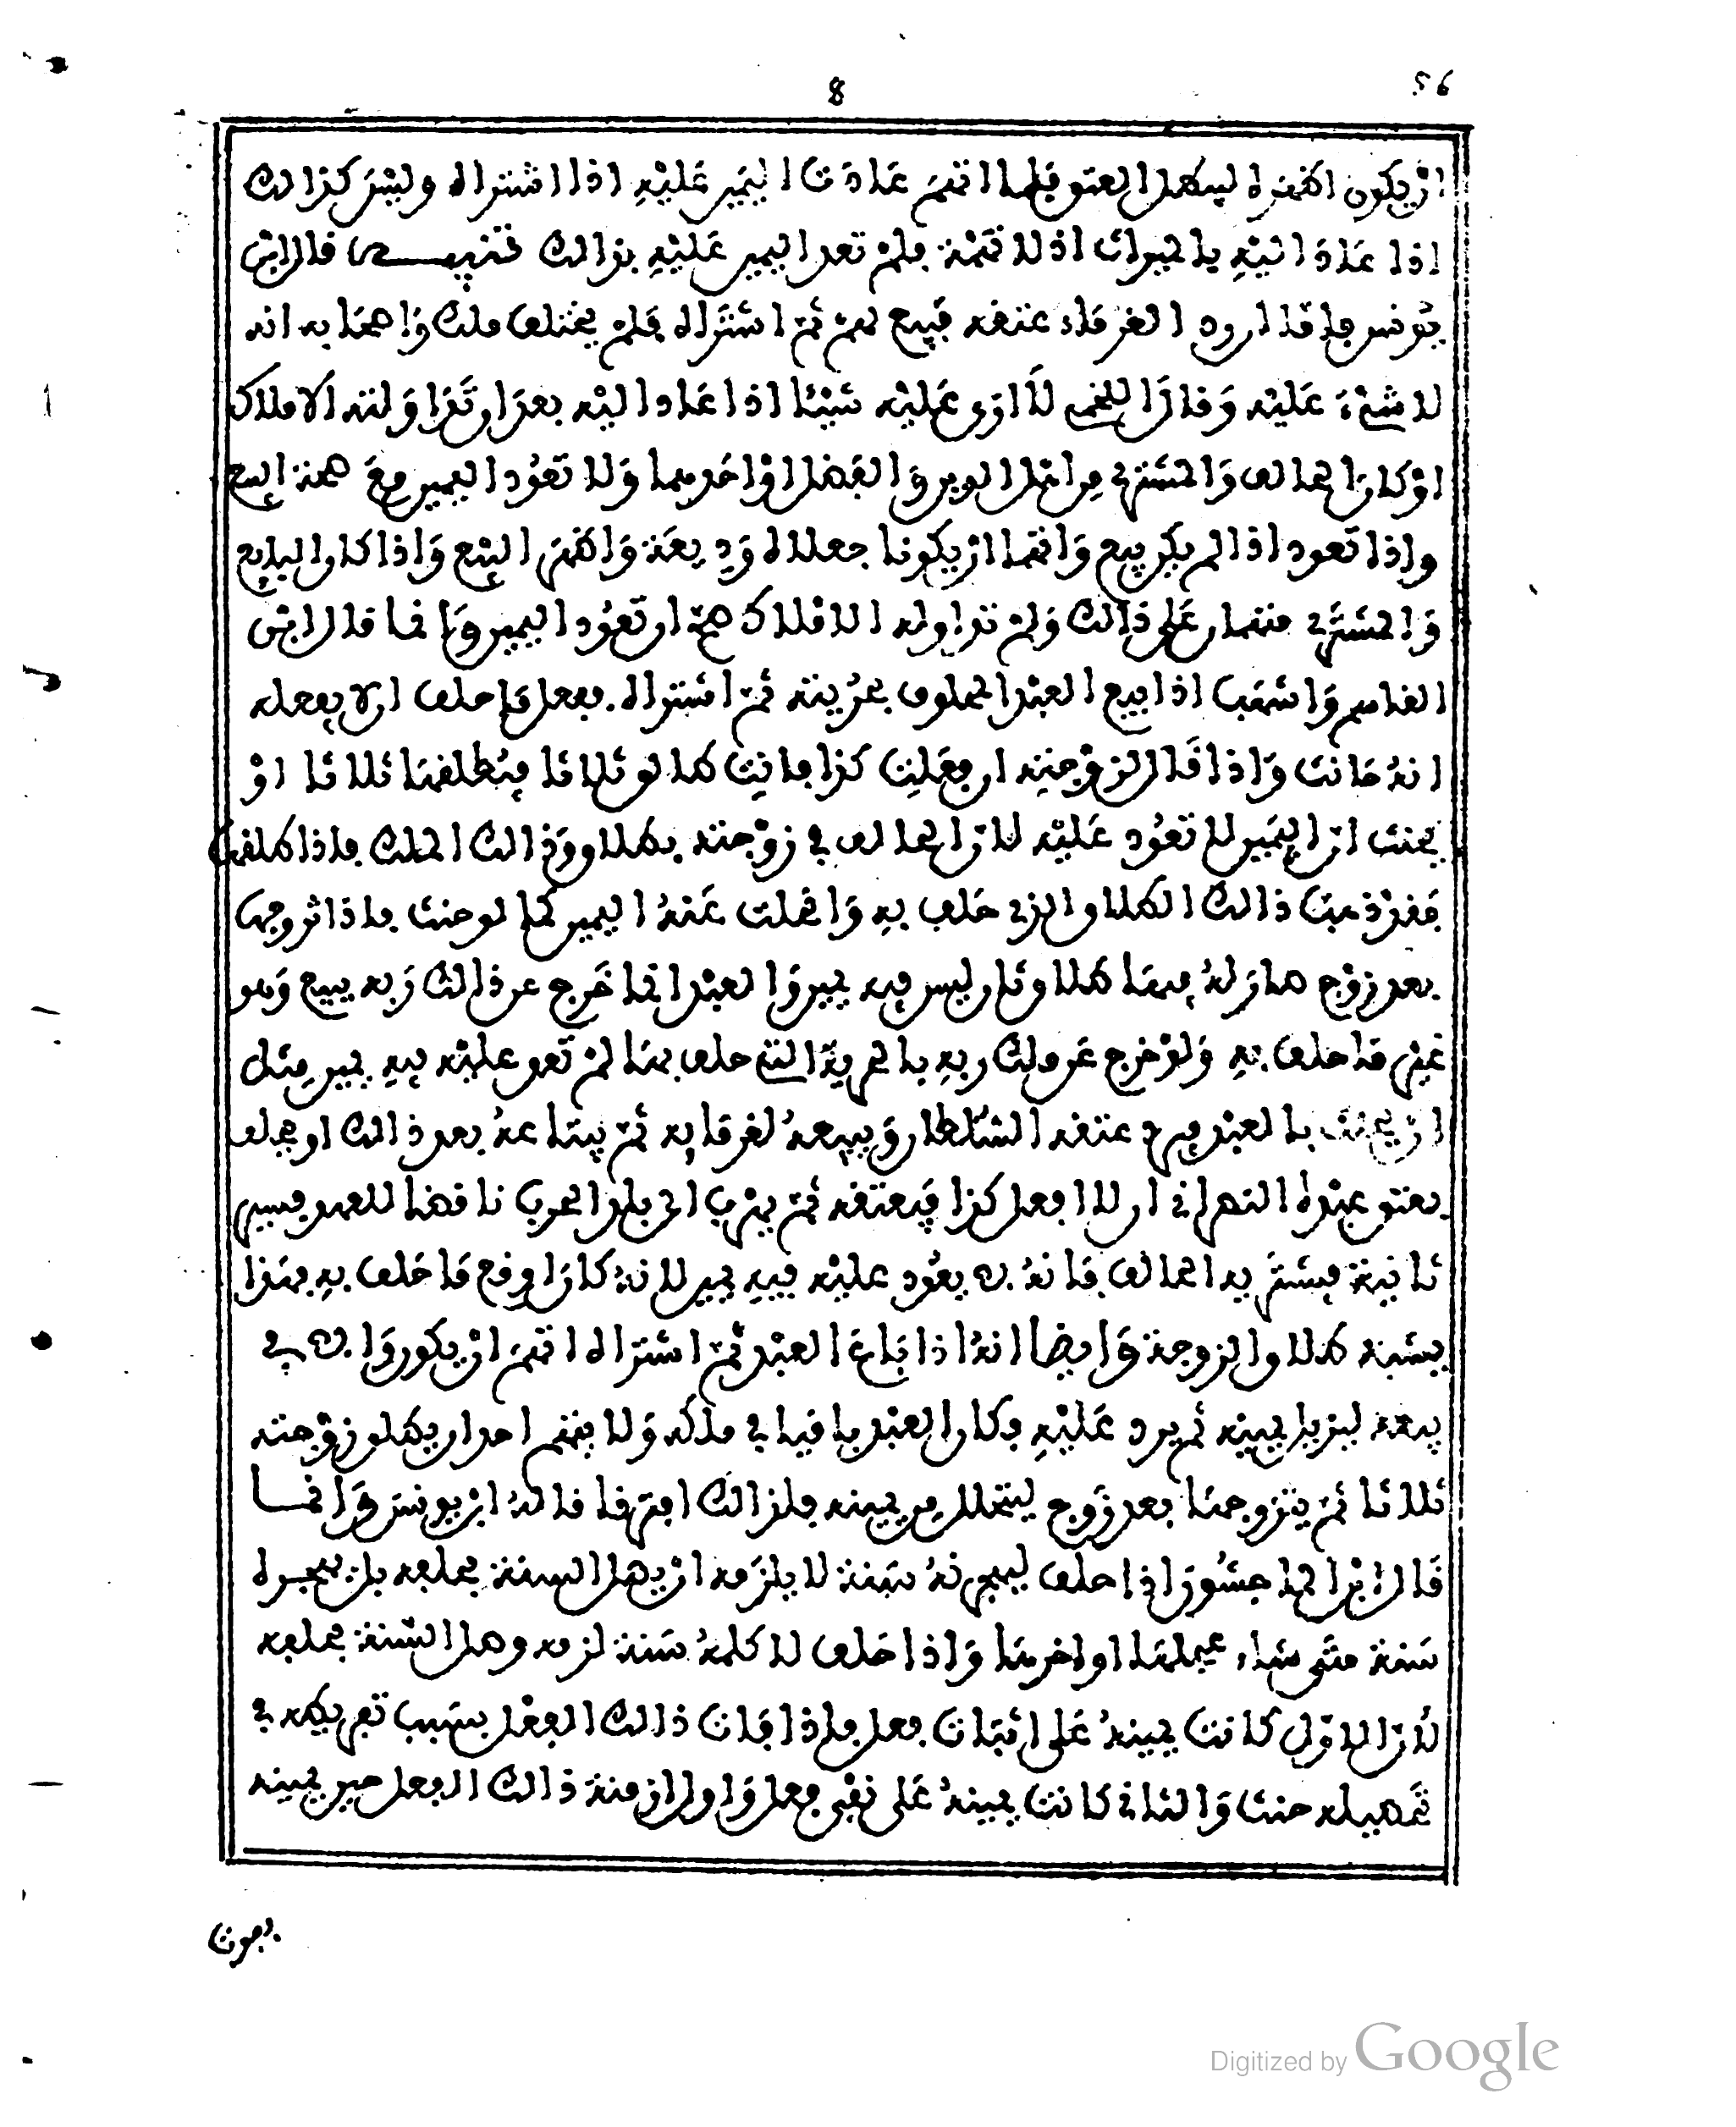 8
56
ان يكون اظهره ليبطل العتق فلما اتهم عادت اليمين عليه اذا اشتراه وليس كذالك
اذا عاد اليه بالميراث اذ لا تهمة فلم تعد اليمين عليه بذالك قال ابن
يونس فإن رد الغرماء عتقه فبيع لهم ثم اشتراه فلم يختلف ملك واصحابه انه
لا شيء عليه وقال اللخمي لا ارى عليه شيئا اذا عاد اليه بعد ان تداولته الاملاك
او كان الحالف والمشتري من اهل الدين والفضل او احدهما ولا تعود اليمين مع صحة البيع
وإذا تعود اذا لم يكن بيع وانهما ان يكونا جعلاه وديعة واظهرا البيع واذا كان البايع
والمشتري متهمان على ذالك ولم تداوله الاملاك صح ان تعود اليمين وإنما قال ابن
القاسم واشهب اذا بيع العبد المحلوف بحريته ثم اشتراه ففعل ما حلف ان لا يفعله
انه حانث واذا قال لزوجته ان فعلت كذا فانت طالق ثلاثا فيطلقها ثلاثا او
يحنث ان اليمين لا تعود عليه لان الحالف في زوجته بطلاق ذالك الملك فاذا طلقت
فقد ذهب ذالك الطلاق الذي حلف به وانحلت عنه اليمين كما لو حنث فاذا تزوجها
بعد زوج صار له فيها طلاق ثان ليس فيه يمين والعبد انما خرج عن ذالك ربه ببيع وهو
غير ما حلف به ولو خرج عن ملك ربه بالحرية التي حلف بها لم تعد عليه فيه يمين مثل
ان يحنث بالعبد فيرد عتقه السلطان ويبيعه لغرمايه ثم يبتاعه بعد ذالك او يحلف
بعتق عبده النصراني ان لا افعل كذا فيعتقه ثم يهرب الى بلد الحرب ناقضا للعهد فيسبى
ثانية فيشتريه الحالف فانه لا يعود عليه فيه يمين لانه كان اوقع ما حلف به بهذا
يشبه طلاق الزوجة وايضا انه اذا باع العبد ثم اشتراه اتهم ان يكون في
بيعه ليزيل يمينه ثم يرد عليه فكان العبد باقيا في ملكه ولا يتهم احد ان يطلق زوجته
ثلاثا ثم يتزوجها بعد زوج ليتحلل من يمينه فلذالك افترقا قاله ابن يونس وانما
قال ابن الماجشون اذا حلف ليهجرنه سنة لا يلزمه ان يصل السنة بحلفه بل يهجره
سنة متى شاء عجلها او اخرها واذا حلف لا كلمه سنة لزمه وصل السنة بحلفه
لان الاول كانت يمينه على اثبات فعل فإذا فات ذالك الفعل بسبب تفريطه في
تحصيله حنث والثاني كانت يمينه على نفي فعل واول ازمنة ذالك الفعل حين يمينه
Digitized by Google